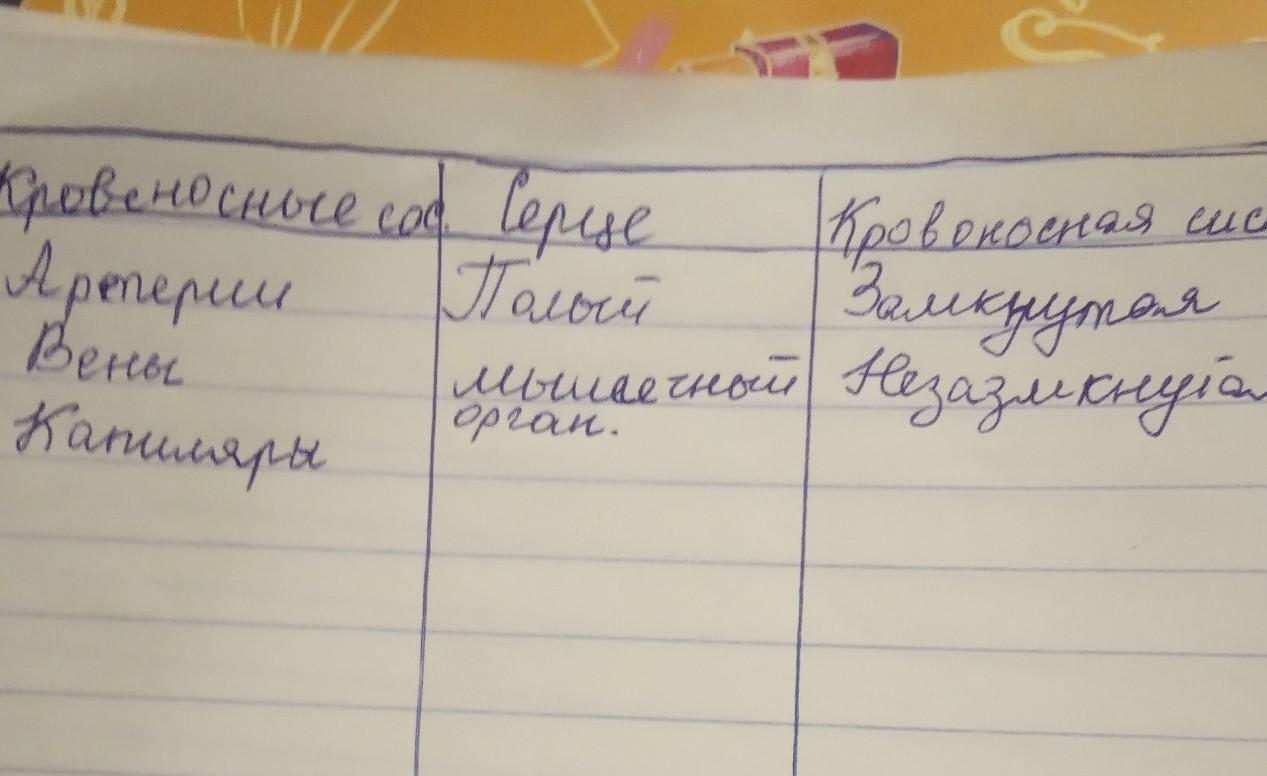 Кровеносные сос. Серце Кровоносная сис
Артерии Полый Замкнутая
Вены мышечный Незазмкнутая
орган.
Капиляры